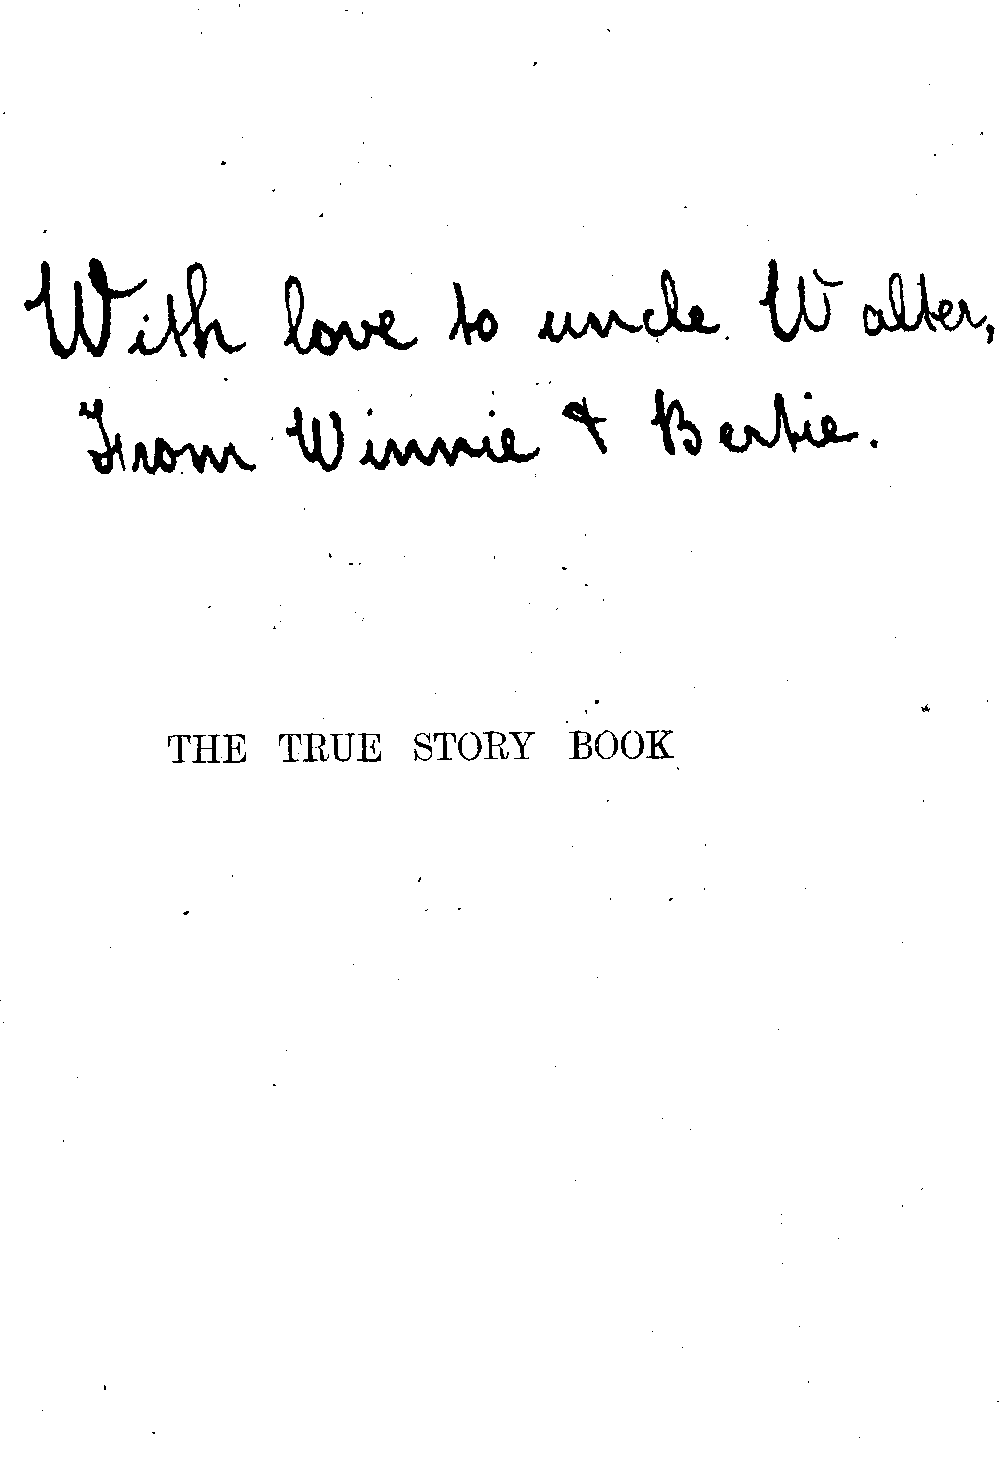 With love to uncle Walter,
From Winnie & Bertie.
THE TRUE STORY BOOK